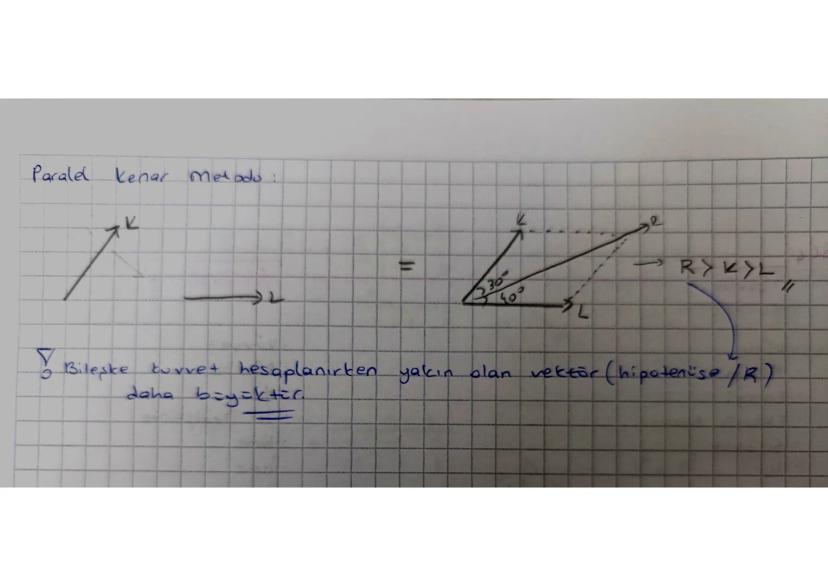 Paralel kenar metodu:
K
L
=
K
R
30°
40°
L
→ R > K > L //
! Bileşke kuvvet hesaplanırken yakın olan vektör (hipotenüse / R)
daha büyüktür.